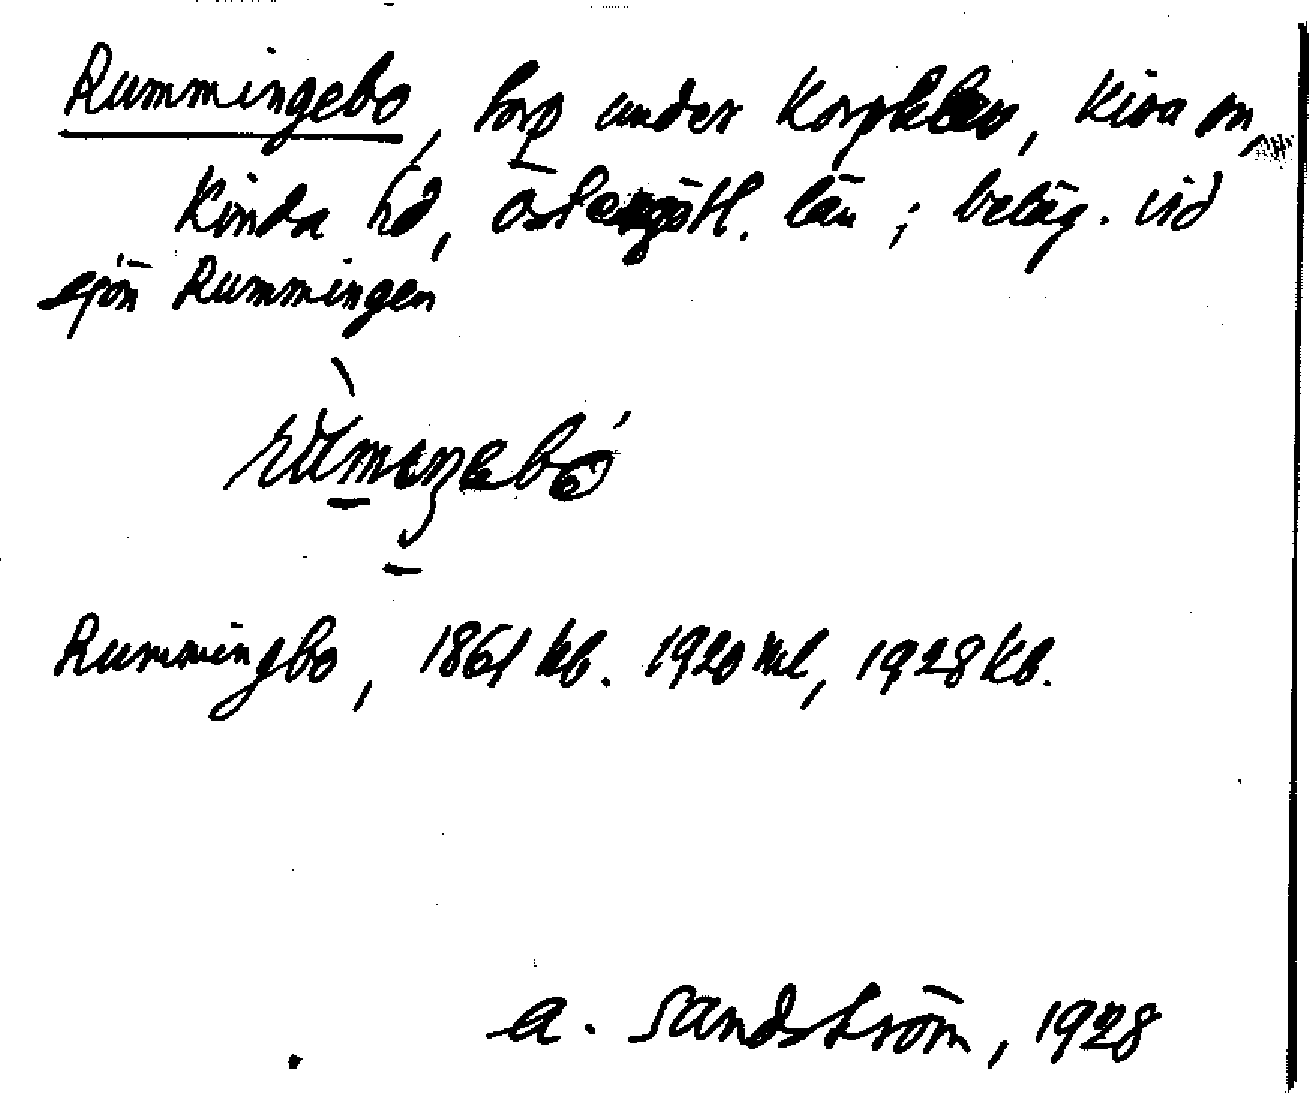 Rummingebo, torp under Korpklev, Kisa sn,
Kinda hd, Östergötl. län; beläg. vid
sjön Rummingen
Rummingbo, 1861 kb. 1920 ml, 1928 kb.
A. Sandström, 1928